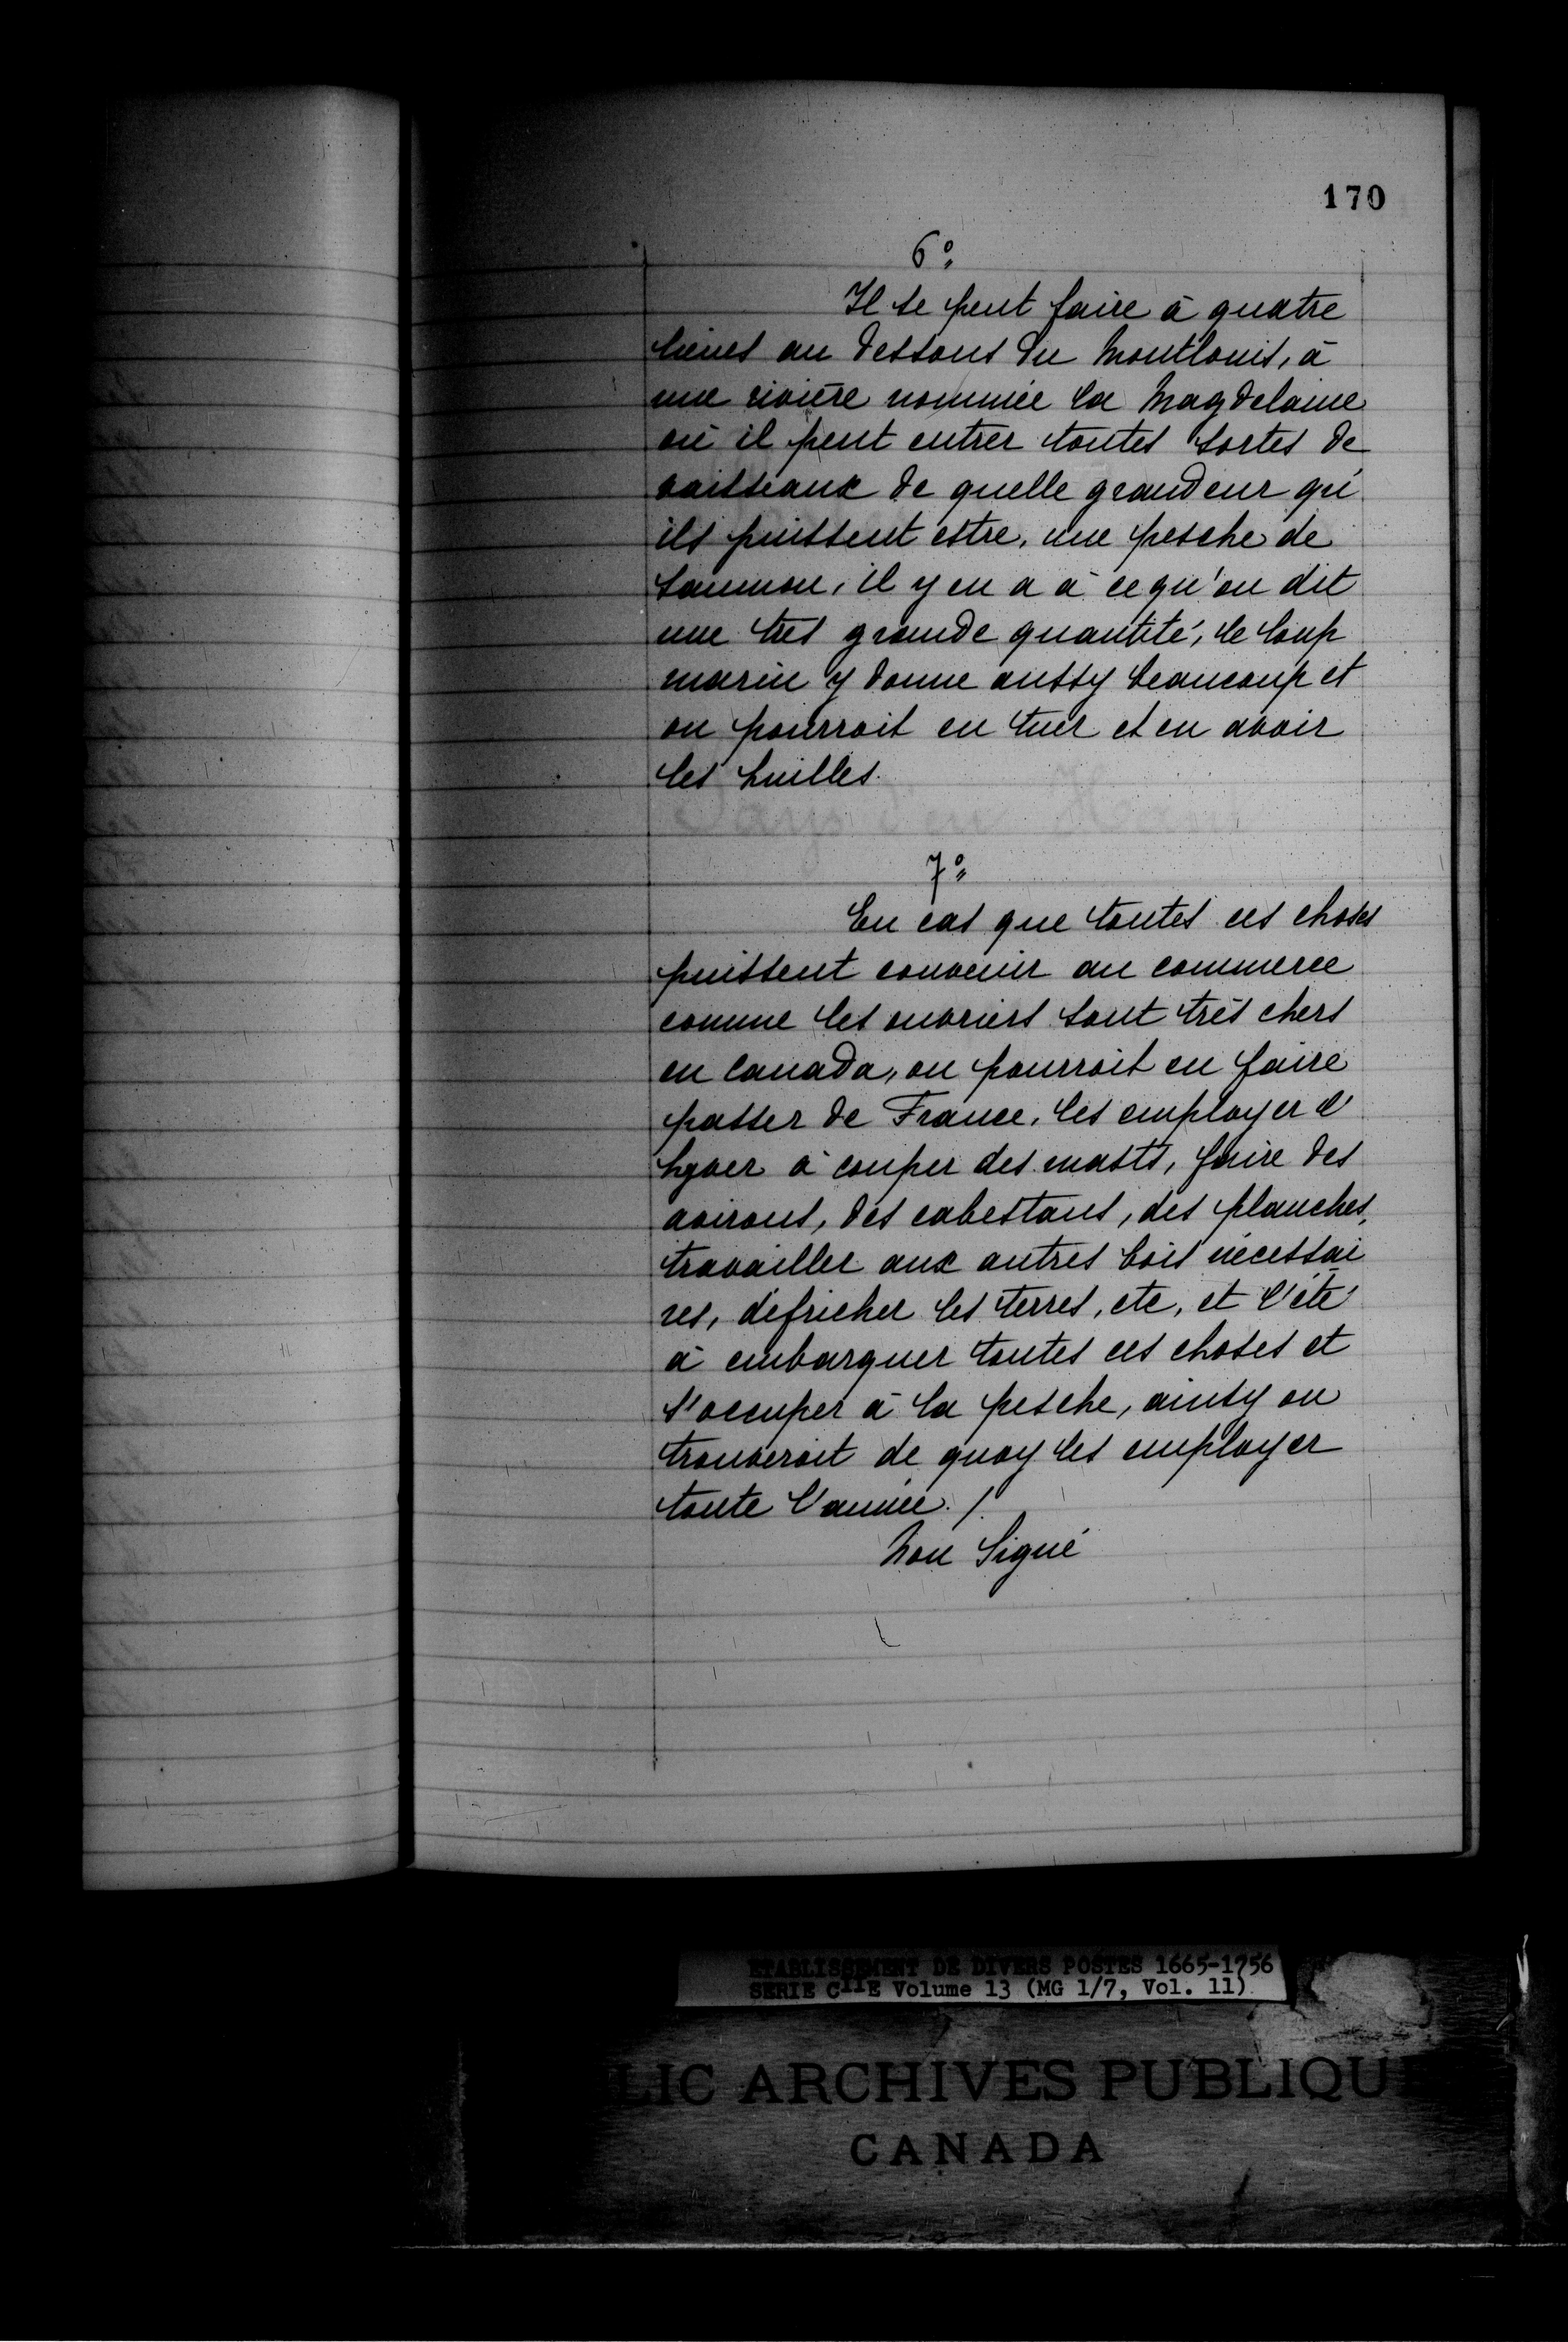 170
6º
Il se peut faire à quatre
lieues au dessous du Montlouis, à
une rivière nommée la Magdelaine
où il peut entrer toutes sortes de
vaisseaux de quelle grandeur qu'
ils puissent estre, une pesche de
saumon, il y en a à ce qu'on dit
une très grande quantité, le loup
marin y donne aussy beaucoup et
on pourroit en tuer et en avoir
les huilles.
7º
En cas que toutes ces choses
puissent convenir au commerce
comme les ouvriers sont très chers
en Canada, on pourroit en faire
passer de France, les employer l'
hyver à couper des masts, faire des
avirons, des cabestans, des planches,
travailler aux autres bois nécessai
res, défricher les terres, etc, et l'été
à embarquer toutes ces choses et
s'occuper à la pesche, ainsy on
trouveroit de quoy les employer
toute l'année. /.
Non Signé
ETABLISSEMENT DE DIVERS POSTES 1665-1756
SERIE C11E Volume 13 (MG 1/7, Vol. 11)
LIC ARCHIVES PUBLIQU
CANADA